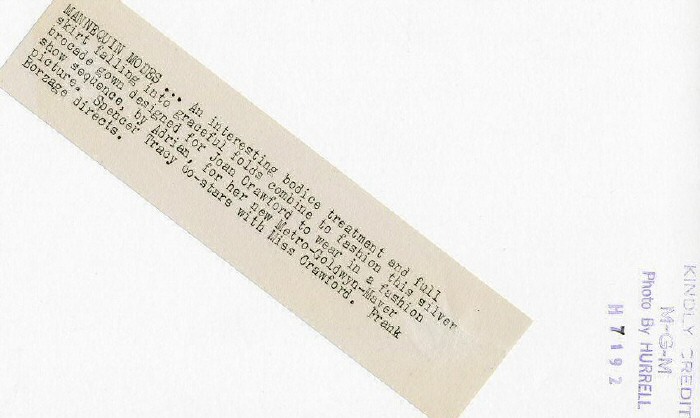 MANNEQUIN MODES... An interesting bodice treatment and full
skirt falling into graceful folds combine to fashion this silver
brocade gown designed for Joan Crawford to wear in a fashion
show sequence, by Adrian, for her new Metro-Goldwyn-Mayer
picture. Spencer Tracy co-stars with Miss Crawford. Frank
Borzage directs.
KINDLY CREDIT
M-G-M
Photo By HURRELL
H 7192